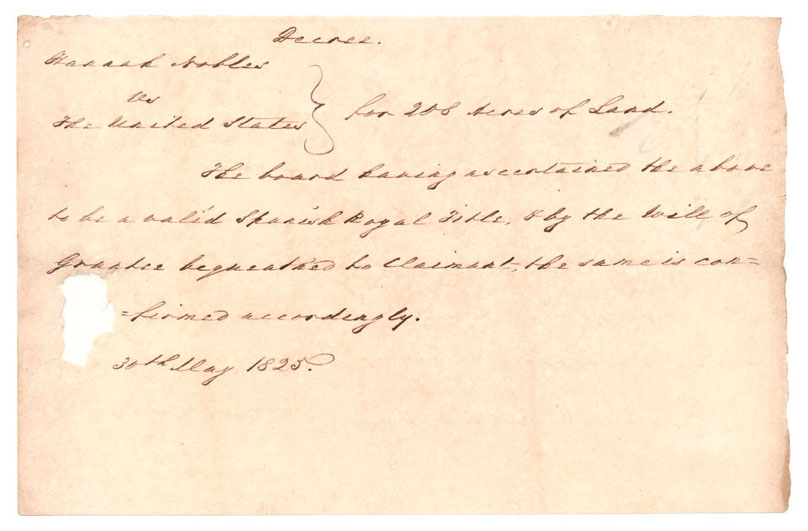 Decree.
Hannah Nobles
vs
The United States } for 208 Acres of Land.
The board having ascertained the above
to be a valid Spanish Royal Title, & by the Will of
Grantee bequeathed to Claimant, the same is con=
=firmed accordingly.
30th May 1825.